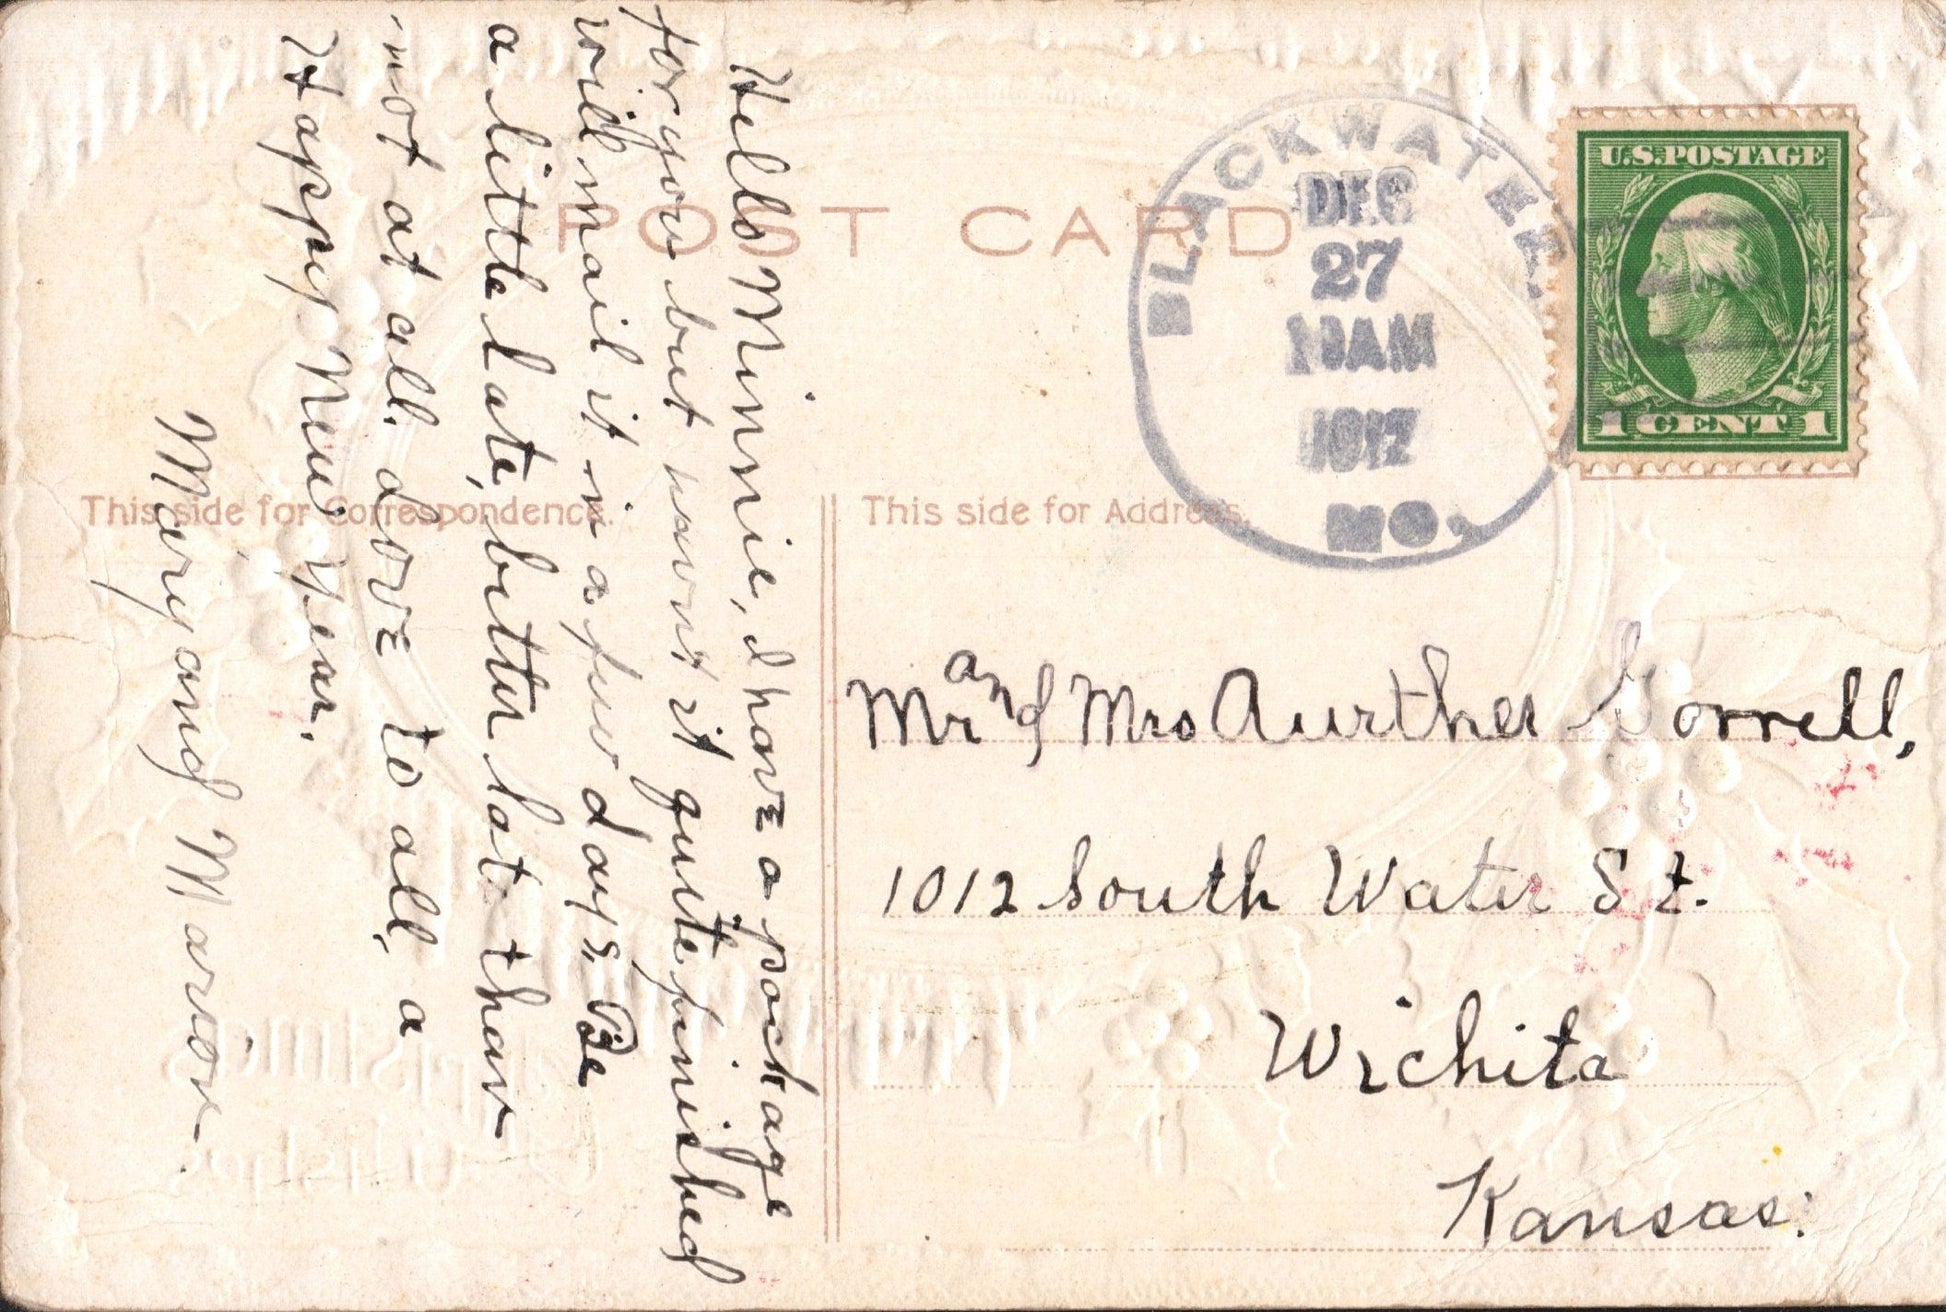 POST CARD
BLACKWATER
DEC
27
10AM
1917
MO.
U.S. POSTAGE
1 CENT 1
This side for Correspondence.
This side for Address.
Hello Minnie, I have a package
for you but havn't it quite finished
will mail it in a few days, Be
a little late, better late then
not at all. Love to all, a
Happy New Year.
Mary and Marion.
Mr and Mrs Aurther Gorrell,
1012 South Water St.
Wichita
Kansas.